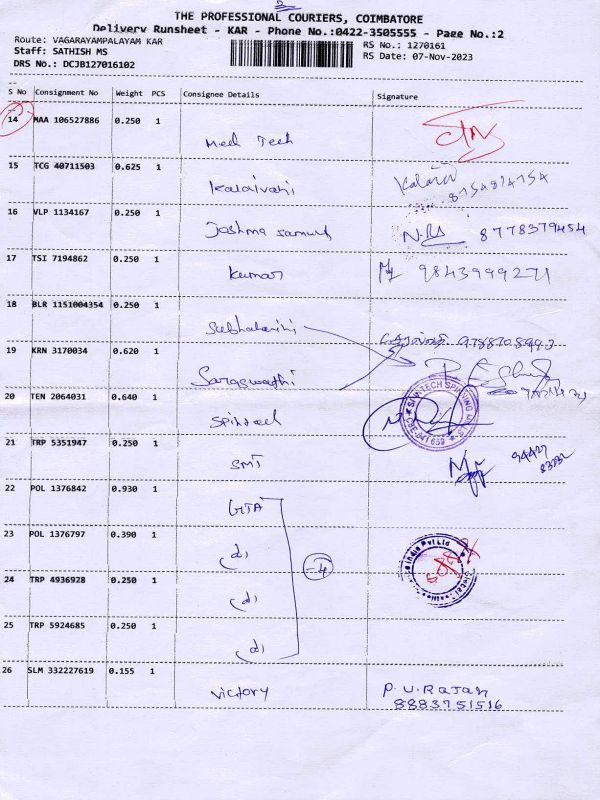 2
THE PROFESSIONAL COURIERS, COIMBATORE
Delivery Runsheet - KAR - Phone No.:0422-3505555 - Page No.:2
Route: VAGARAYAMPALAYAM KAR
RS No.: 1270161
Staff: SATHISH MS
RS Date: 07-Nov-2023
DRS No.: DCJB127016102
S No Consignment No Weight PCS Consignee Details Signature
14 MAA 106527886 0.250 1
Med Tech
15 TCG 40711503 0.625 1
Kalaivani
8754874754
16 VLP 1134167 0.250 1
Joshma Samuel
N.RS 8778379454
17 TSI 7194862 0.250 1
Kumar
9843999271
18 BLR 1151004354 0.250 1
Subhalarini
19 KRN 3170034 0.620 1
Saraswathi
20 TEN 2064031 0.640 1
Spintech
SIVA TECH SPINNING
21 TRP 5351947 0.250 1
SMT
94427
83232
22 POL 1376842 0.930 1
GTA
23 POL 1376797 0.390 1
(d)
4
India Pvt Ltd
24 TRP 4936928 0.250 1
(d)
25 TRP 5924685 0.250 1
(d)
26 SLM 332227619 0.155 1
Victory
P.U.Rajan
8883751516